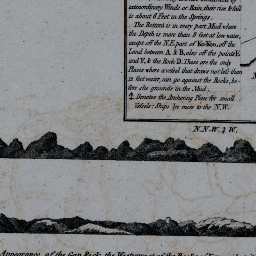 extraordinary Winds or Rain, their rise & fall
is about 8 Feet in the Springs.
The Bottom is in every part Mud where
the Depth is more than 8 feet at low water,
except off the N.E. part of Ko-Koo, off the
land between A & B, also off the points E
and V, & the Rock D. These are the only
Places where a vessel that draws not less than
8 Feet water, can go against the Rocks, be-
fore she grounds in the Mud.
Denotes the Anchoring Place for small
Vessels: Ships lie more to the N.W.
N.N.W. ½ W.
Appearance of the Gap Rock, the Westernmost of the